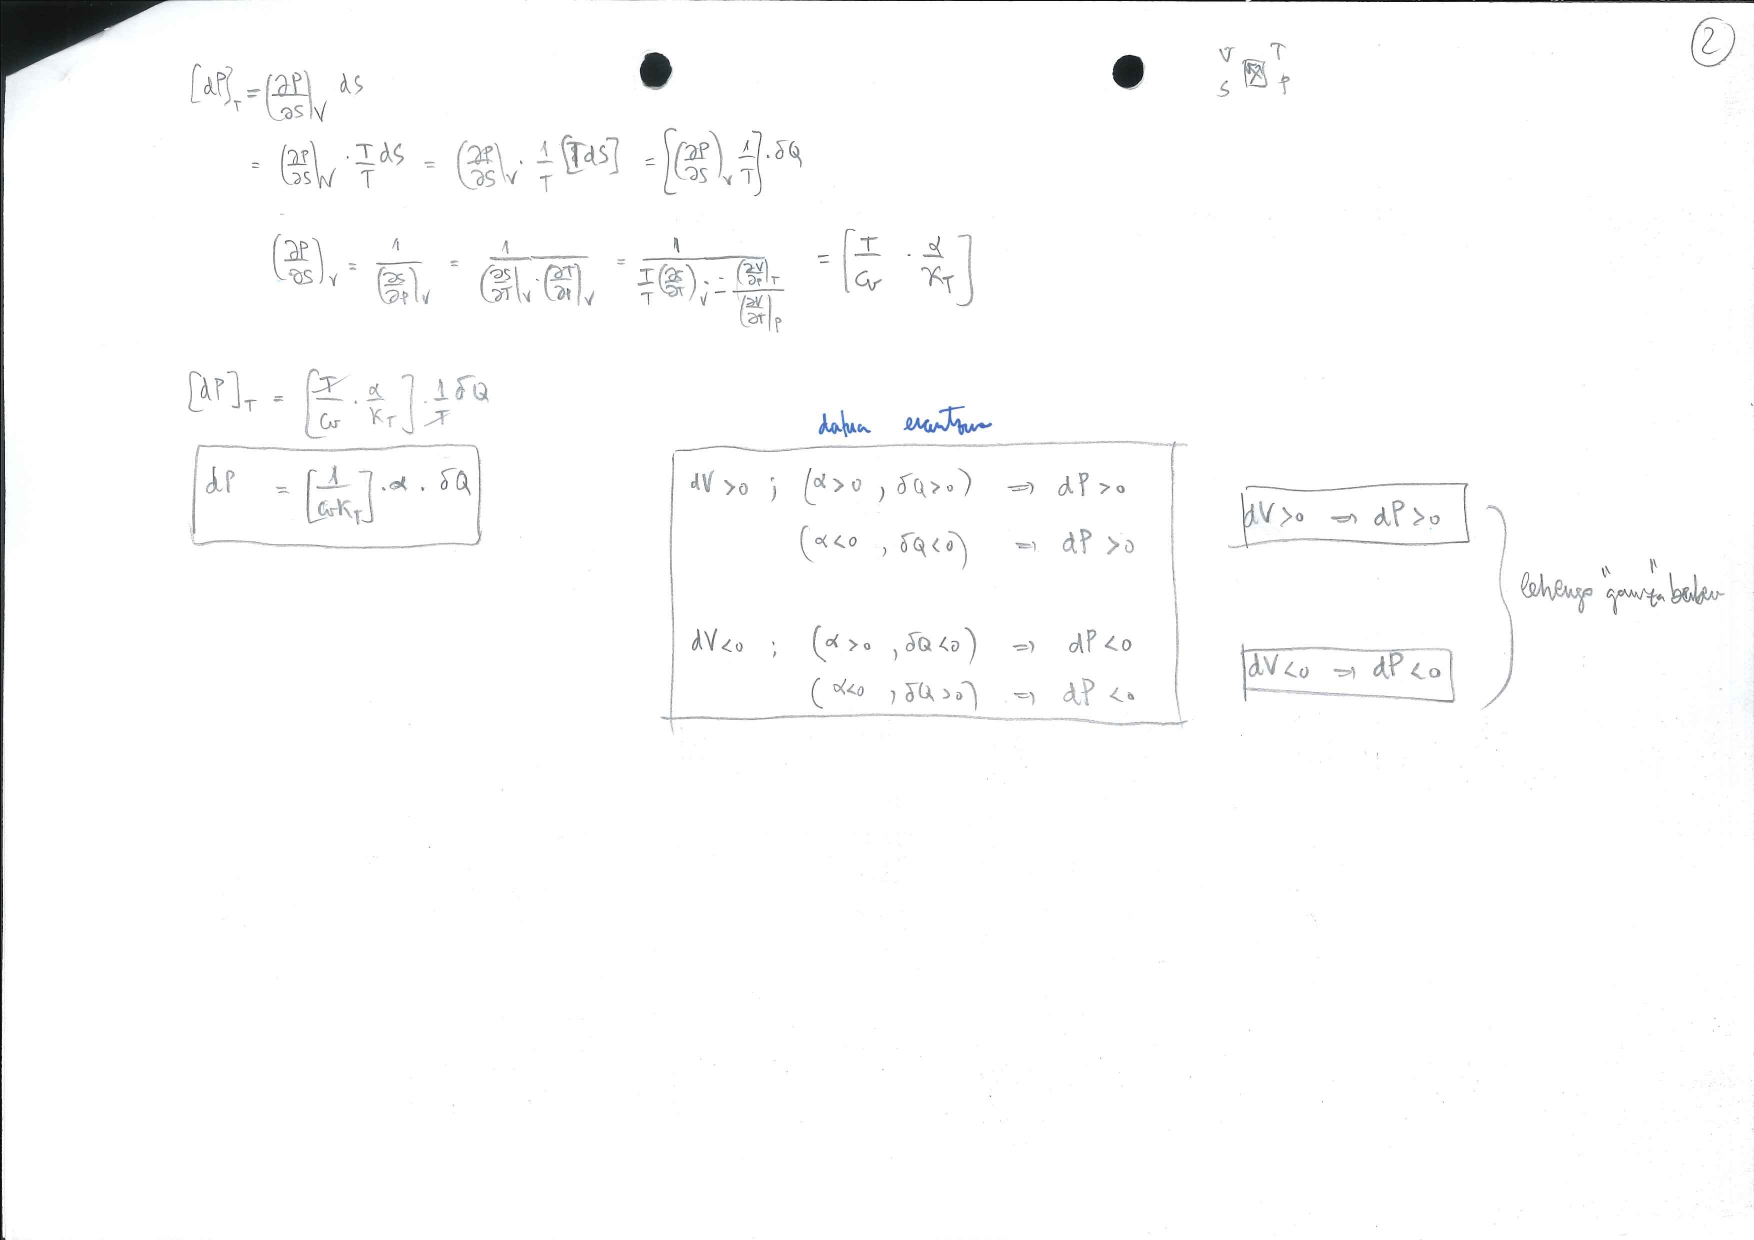 2
V T
S P
[dP]_T = (∂P/∂S)_V dS
= (∂P/∂S)_V · T/T dS = (∂P/∂S)_V · 1/T [TdS] = [(∂P/∂S)_V 1/T] · δQ
(∂P/∂S)_V = 1/(∂S/∂P)_V = 1/((∂S/∂T)_V · (∂T/∂P)_V) = 1/(T/T (∂S/∂T)_V · − (∂V/∂P)_T/(∂V/∂T)_P) = [T/c_V · α/κ_T]
[dP]_T = [T/c_V · α/κ_T] · 1/T δQ
dP = [1/(c_V κ_T)] · α · δQ
datua erantzuna
dV>0 ; (α>0 , δQ>0) ⇒ dP>0
(α<0 , δQ<0) ⇒ dP>0
dV<0 ; (α>0 , δQ<0) ⇒ dP<0
(α<0 , δQ>0) ⇒ dP<0
dV>0 ⇒ dP>0
dV<0 ⇒ dP<0
lehengo "gauza" bera